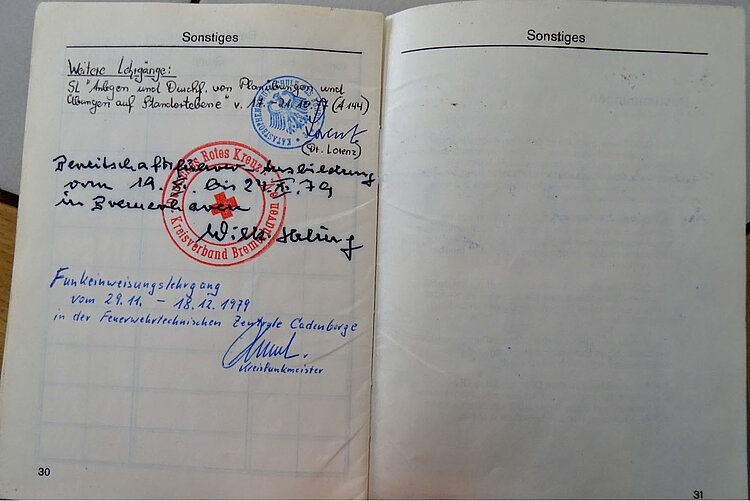 Sonstiges
Weitere Lehrgänge:
SL "Anlegen und Durchf. von Planübungen und
Übungen auf Standortebene" v. 17.-21.10.77 (A 144)
KATASTROPHEN
Lorenz
(Dr. Lorenz)
Rotes Kreuz
Bereitschaftsführer-Ausbildung
vom 19. bis 24. 79
in Bremerhaven
Kreisverband Bremerhaven
Funkeinweisungslehrgang
vom 29.11. - 18.12.1979
in der Feuerwehrtechnischen Zentrale Cadenberge
Kreisfunkmeister
30
Sonstiges
31